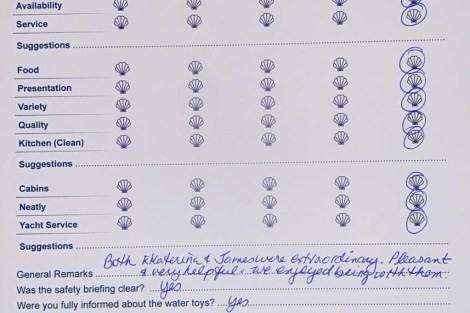 Availability
Service
Suggestions
Food
Presentation
Variety
Quality
Kitchen (Clean)
Suggestions
Cabins
Neatly
Yacht Service
Suggestions
Both Ekaterina & James were extraordinary. Pleasant
General Remarks & very helpful. We enjoyed being with them.
Was the safety briefing clear? .... Yes
Were you fully informed about the water toys? .... Yes